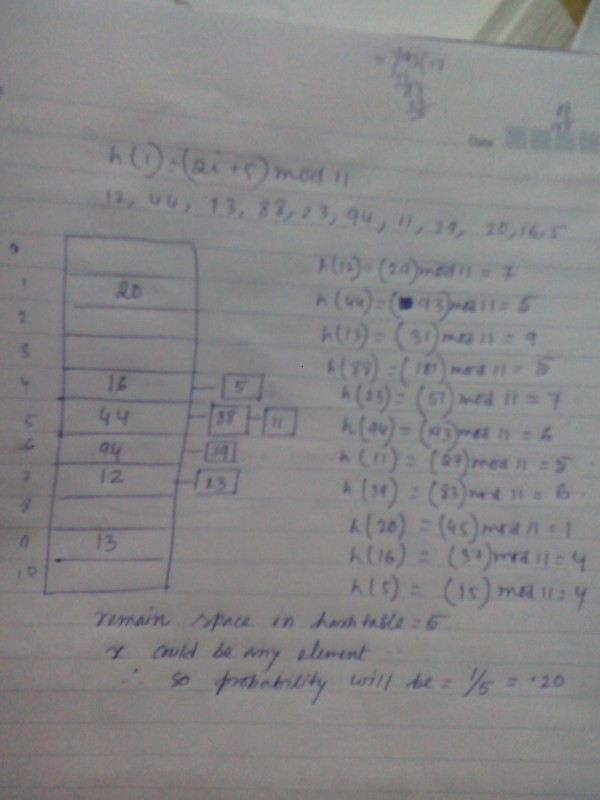 Date
h(i) = (2i+5) mod 11
12, 44, 13, 88, 23, 94, 11, 39, 20, 16, 5
0
1 20
2
3
4 16 5
5 44 88 11
6 94 39
7 12 23
8
9 13
10
h(12) = (29) mod 11 = 7
h(44) = (93) mod 11 = 5
h(13) = (31) mod 11 = 9
h(88) = (181) mod 11 = 5
h(23) = (51) mod 11 = 7
h(94) = (193) mod 11 = 6
h(11) = (27) mod 11 = 5
h(39) = (83) mod 11 = 6
h(20) = (45) mod 11 = 1
h(16) = (37) mod 11 = 4
h(5) = (15) mod 11 = 4
remain space in hashtable = 5
x could be any element
∴ so probability will be = 1/5 = .20